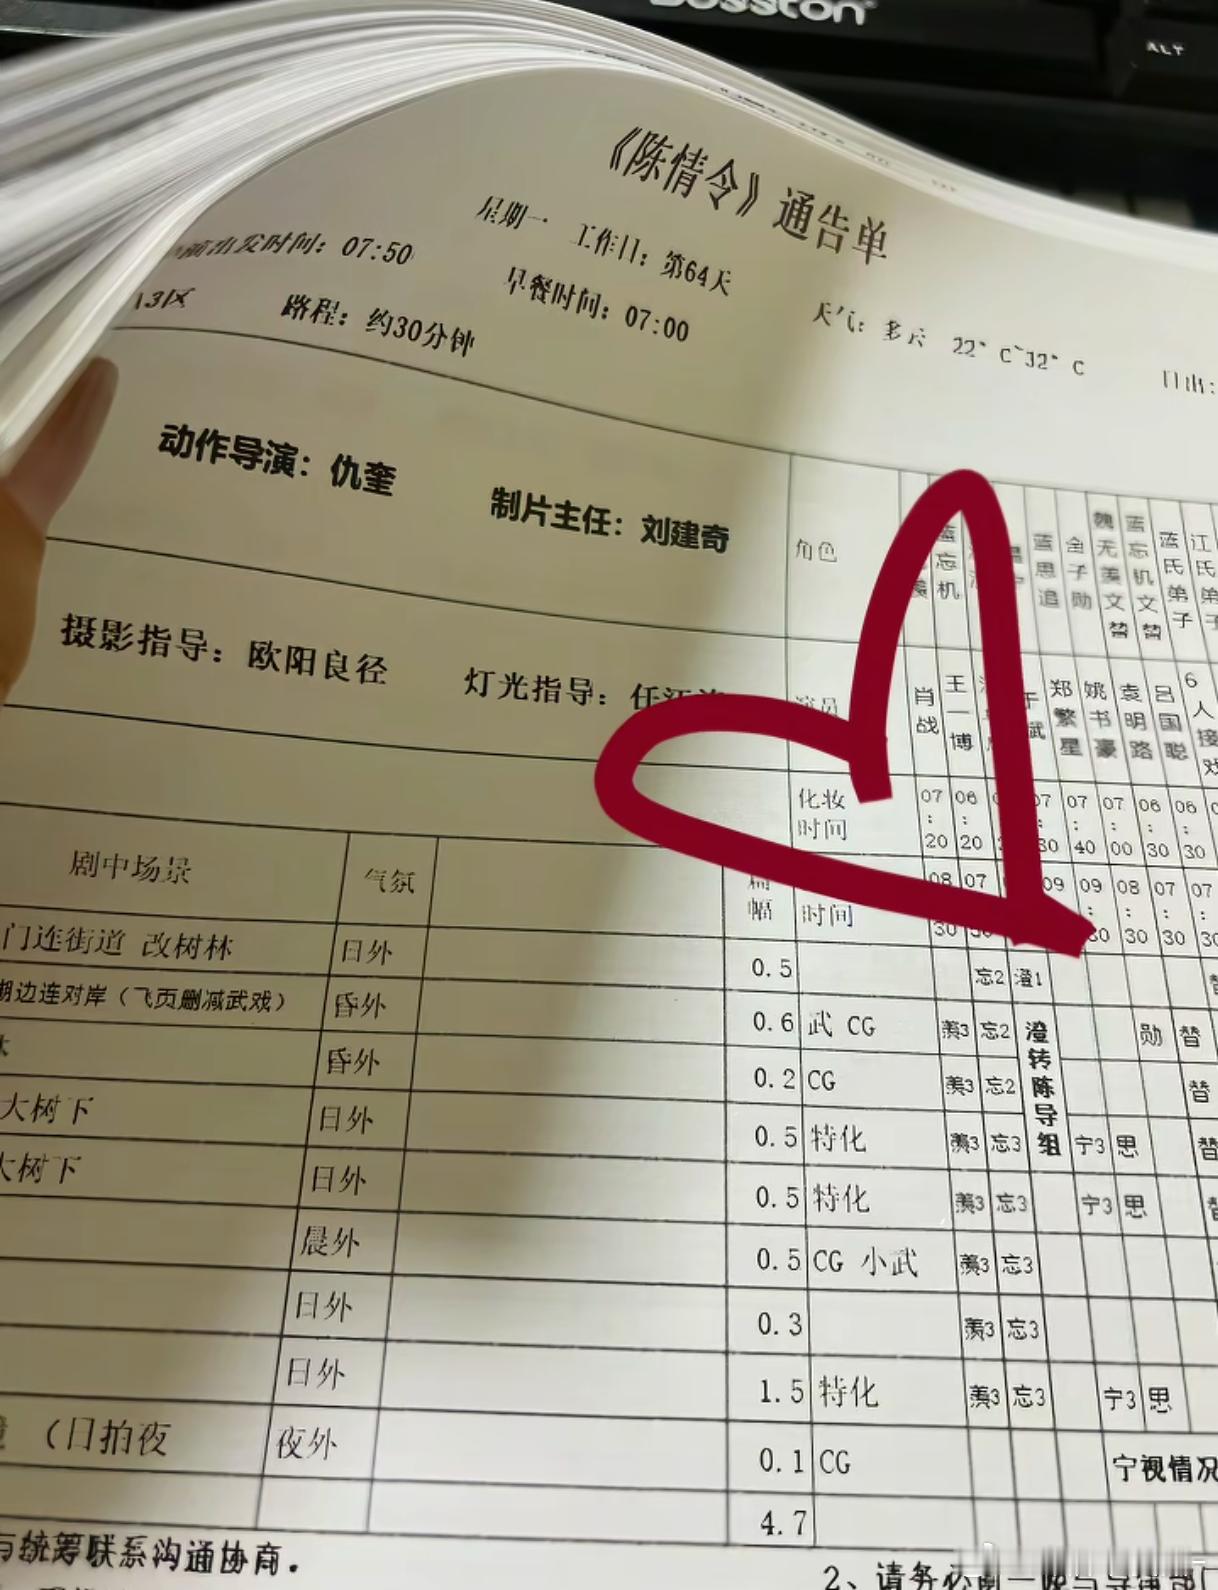 Bosston
ALT
《陈情令》通告单
星期一 工作日：第64天
出发时间：07:50
早餐时间：07:00
天气：多云 22°C~32°C
日出：
A3区
路程：约30分钟
动作导演：仇奎
制片主任：刘建奇
角色
蓝忘机
蓝思追
金子勋
魏无羡文替
蓝忘机文替
蓝氏弟子
江氏弟子
摄影指导：欧阳良径
灯光指导：任江
演员
肖战
王一博
于斌
郑繁星
姚书豪
袁明路
吕国聪
6人接戏
化妆时间
07:20
06:20
07:40
07:00
06:30
06:30
剧中场景
气氛
篇幅
时间
08:30
09:30
08:30
07:30
07:30
门连街道 改树林
日外
0.5
忘2 澄1
湖边连对岸（飞页删减武戏）
昏外
0.6
武 CG
羡3 忘2
澄转陈导组
勋 替
昏外
0.2
CG
羡3 忘2
替
大树下
日外
0.5
特化
羡3 忘3
宁3 思
替
大树下
日外
0.5
特化
羡3 忘3
宁3 思
晨外
0.5
CG 小武
羡3 忘3
日外
0.3
羡3 忘3
日外
1.5
特化
羡3 忘3
宁3 思
（日拍夜
夜外
0.1
CG
宁视情况
4.7
与统筹联系沟通协商.
2、请务必